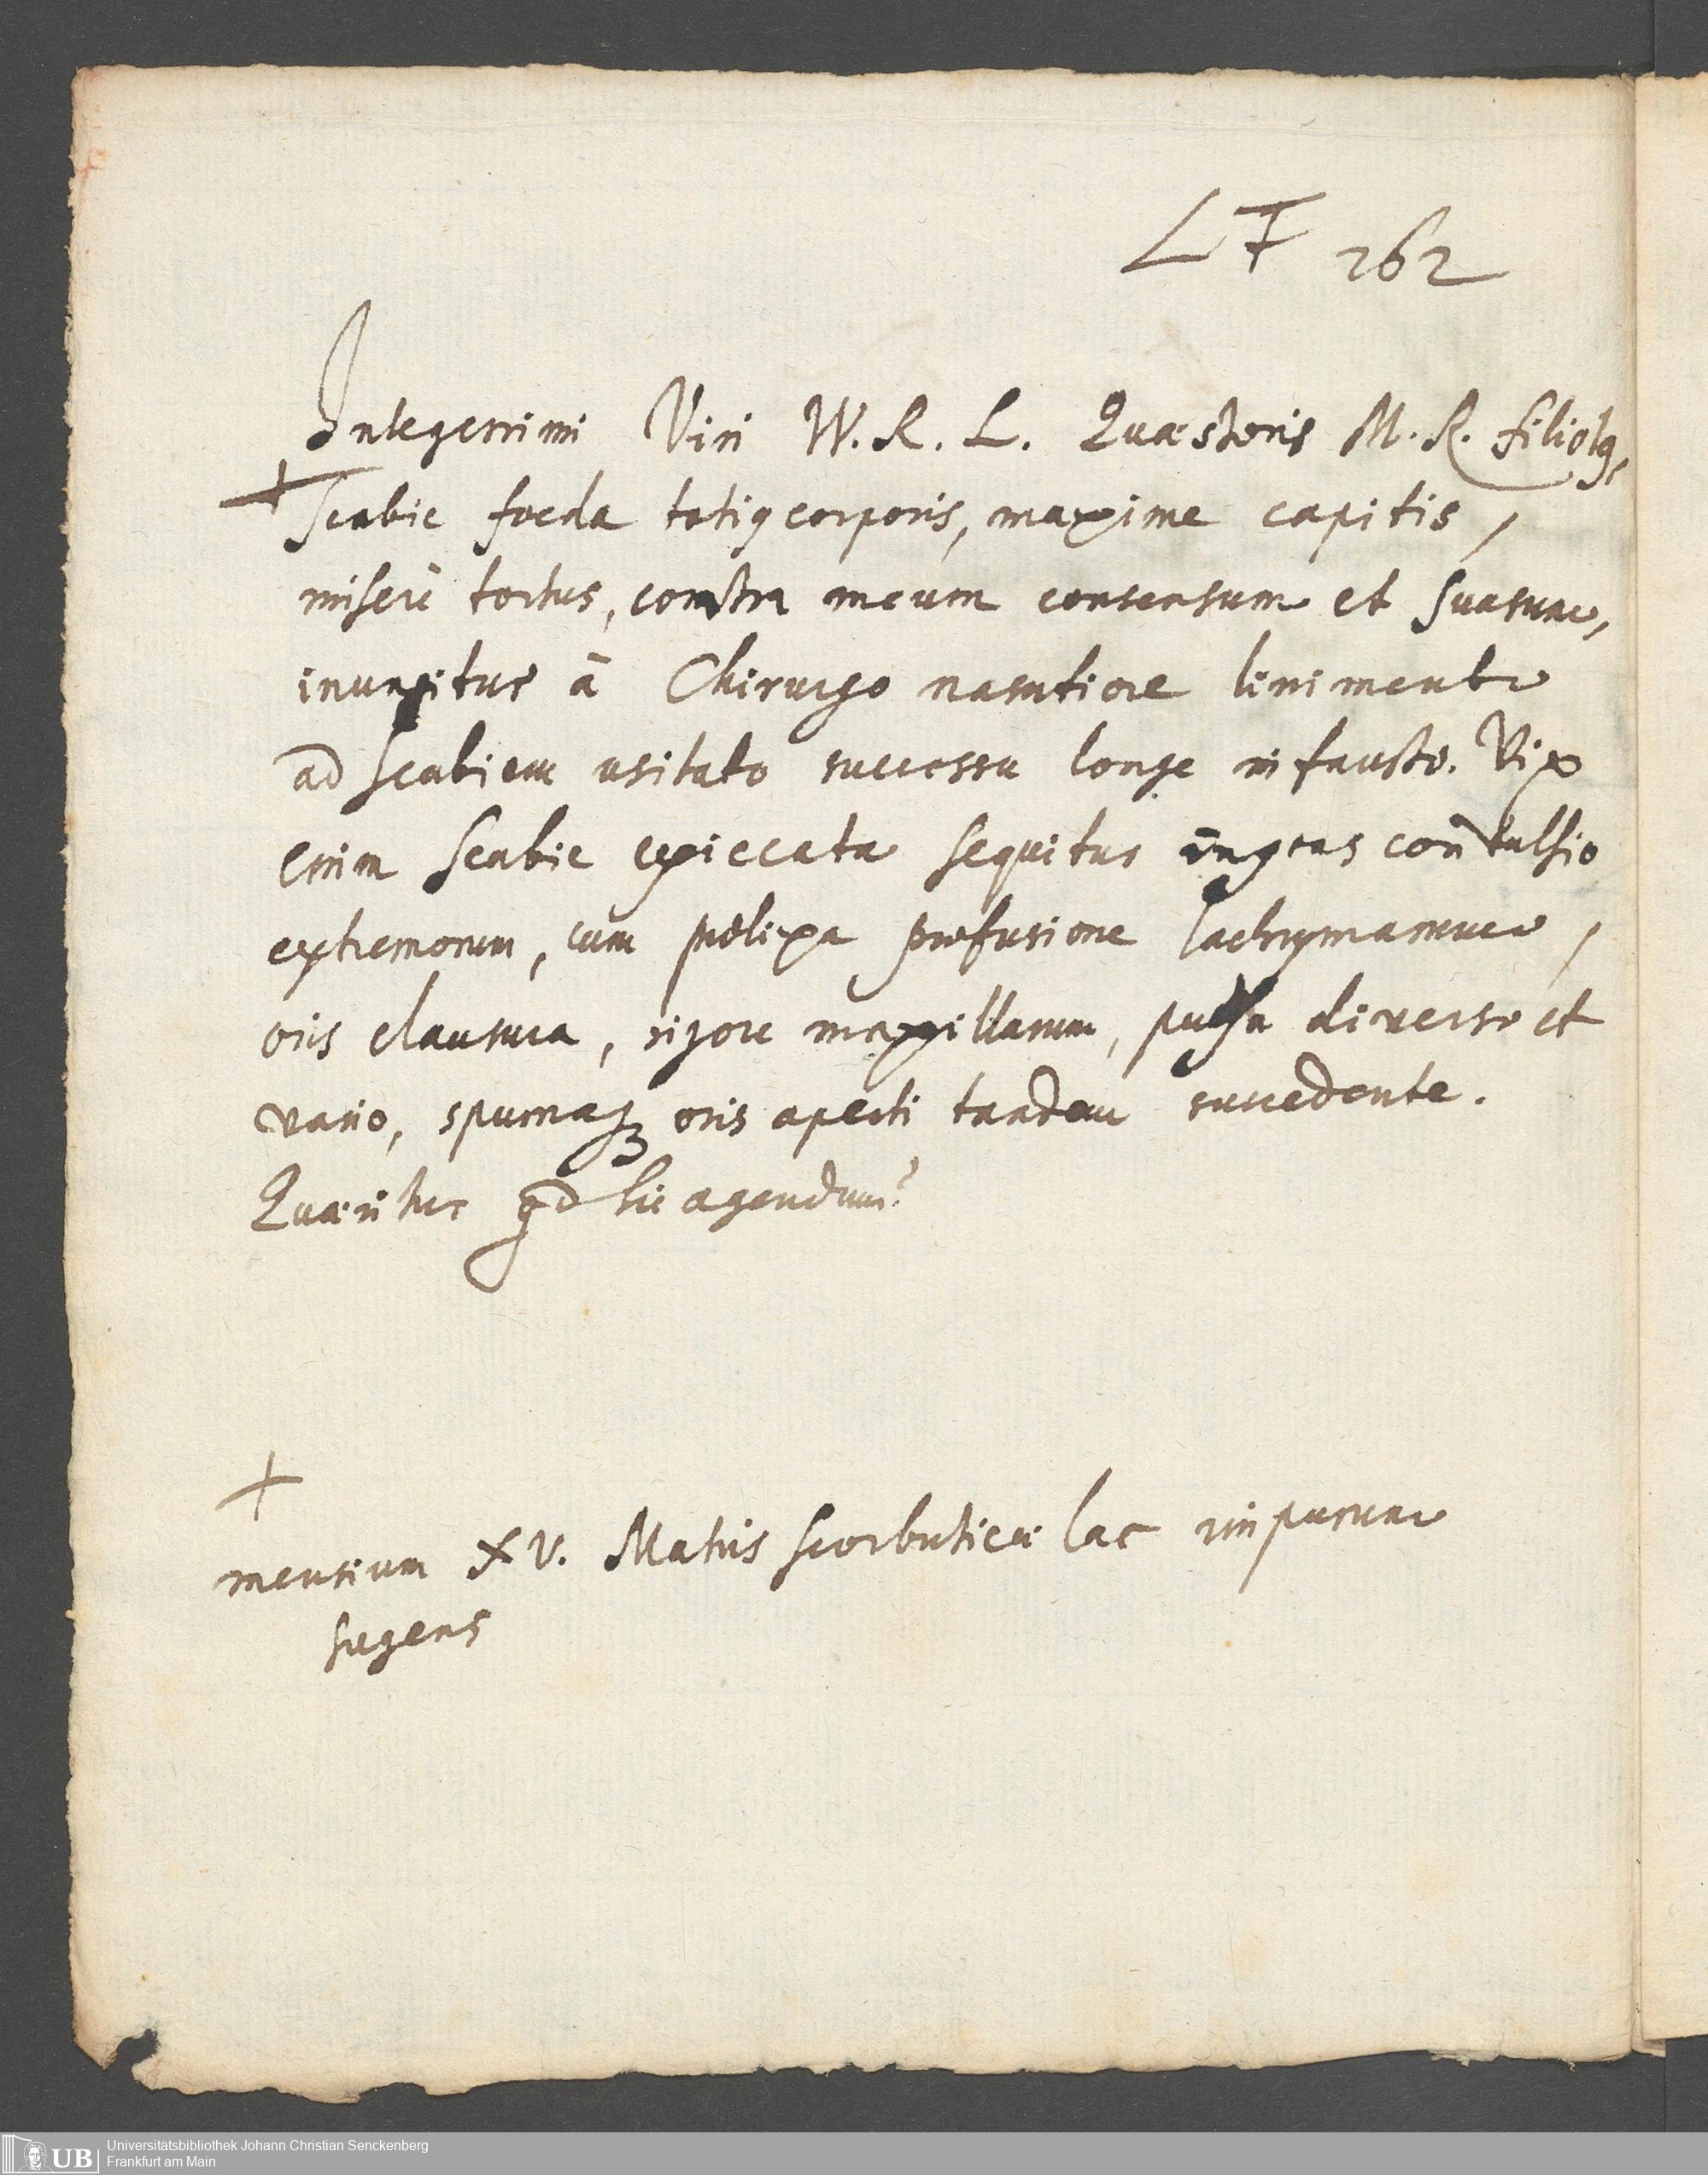 LF 262
Integerrimi Viri W. R. L. Quæstoris M. R. filiolꝰ,
+ Scabie foeda totiꝰ corporis, maxime capitis,
miserè tortus, contra meum consensum et suasum,
inungitur à Chirurgo nasutiore linimento
ad scabiem usitato successu longe infausto. Vix
enim scabie exiccata sequitur ingens convulsio
extremorum, cum prolixa profusione lachrymarum,
oris clausura, rigore maxillarum, pulsu diverso et
vario, spumaqꝫ oris aperti tandem succedente.
Quæritur qd hic agendum?
+
mensium XV. Matris scorbuticæ lac impurum
sugens
UB Universitätsbibliothek Johann Christian Senckenberg
Frankfurt am Main